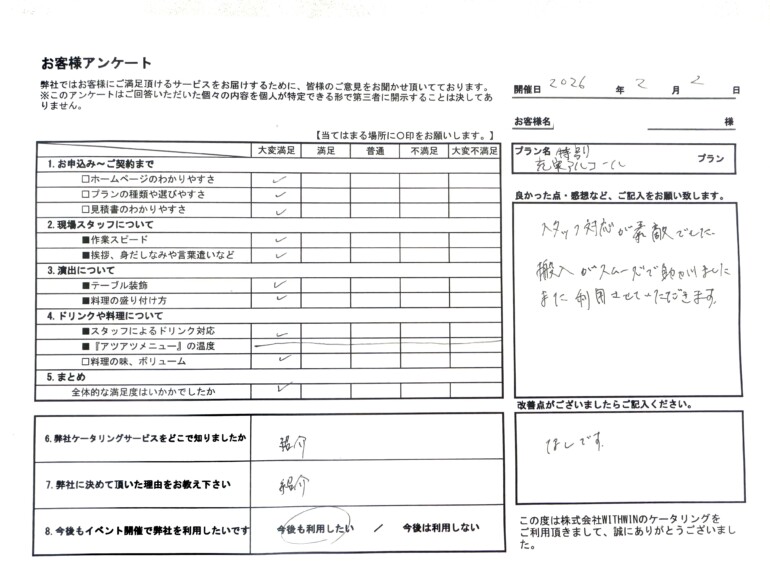 お客様アンケート
弊社ではお客様にご満足頂けるサービスをお届けするために、皆様のご意見をお聞かせ頂いております。
※このアンケートはご回答いただいた個々の内容を個人が特定できる形で第三者に開示することは決してあ
りません。
開催日 2026 年 2 月 2 日
お客様名 様
【当てはまる場所に○印をお願いします。】
プラン名 特割り
充実アルコール プラン
大変満足 満足 普通 不満足 大変不満足
1. お申込み～ご契約まで
□ホームページのわかりやすさ ✓
□プランの種類や選びやすさ ✓
□見積書のわかりやすさ ✓
2. 現場スタッフについて
■作業スピード ✓
■挨拶、身だしなみや言葉遣いなど ✓
3. 演出について
■テーブル装飾 ✓
■料理の盛り付け方 ✓
4. ドリンクや料理について
■スタッフによるドリンク対応 ✓
■『アツアツメニュー』の温度
□料理の味、ボリューム ✓
5. まとめ
全体的な満足度はいかかでしたか ✓
良かった点・感想など、ご記入をお願い致します。
スタッフ対応が素敵でした
搬入がスムーズで助かりました
また利用させていただきます。
改善点がございましたらご記入ください。
なしです。
6. 弊社ケータリングサービスをどこで知りましたか 紹介
7. 弊社に決めて頂いた理由をお教え下さい 紹介
8. 今後もイベント開催で弊社を利用したいです 今後も利用したい / 今後は利用しない
この度は株式会社WITHWINのケータリングを
ご利用頂きまして、誠にありがとうございまし
た。